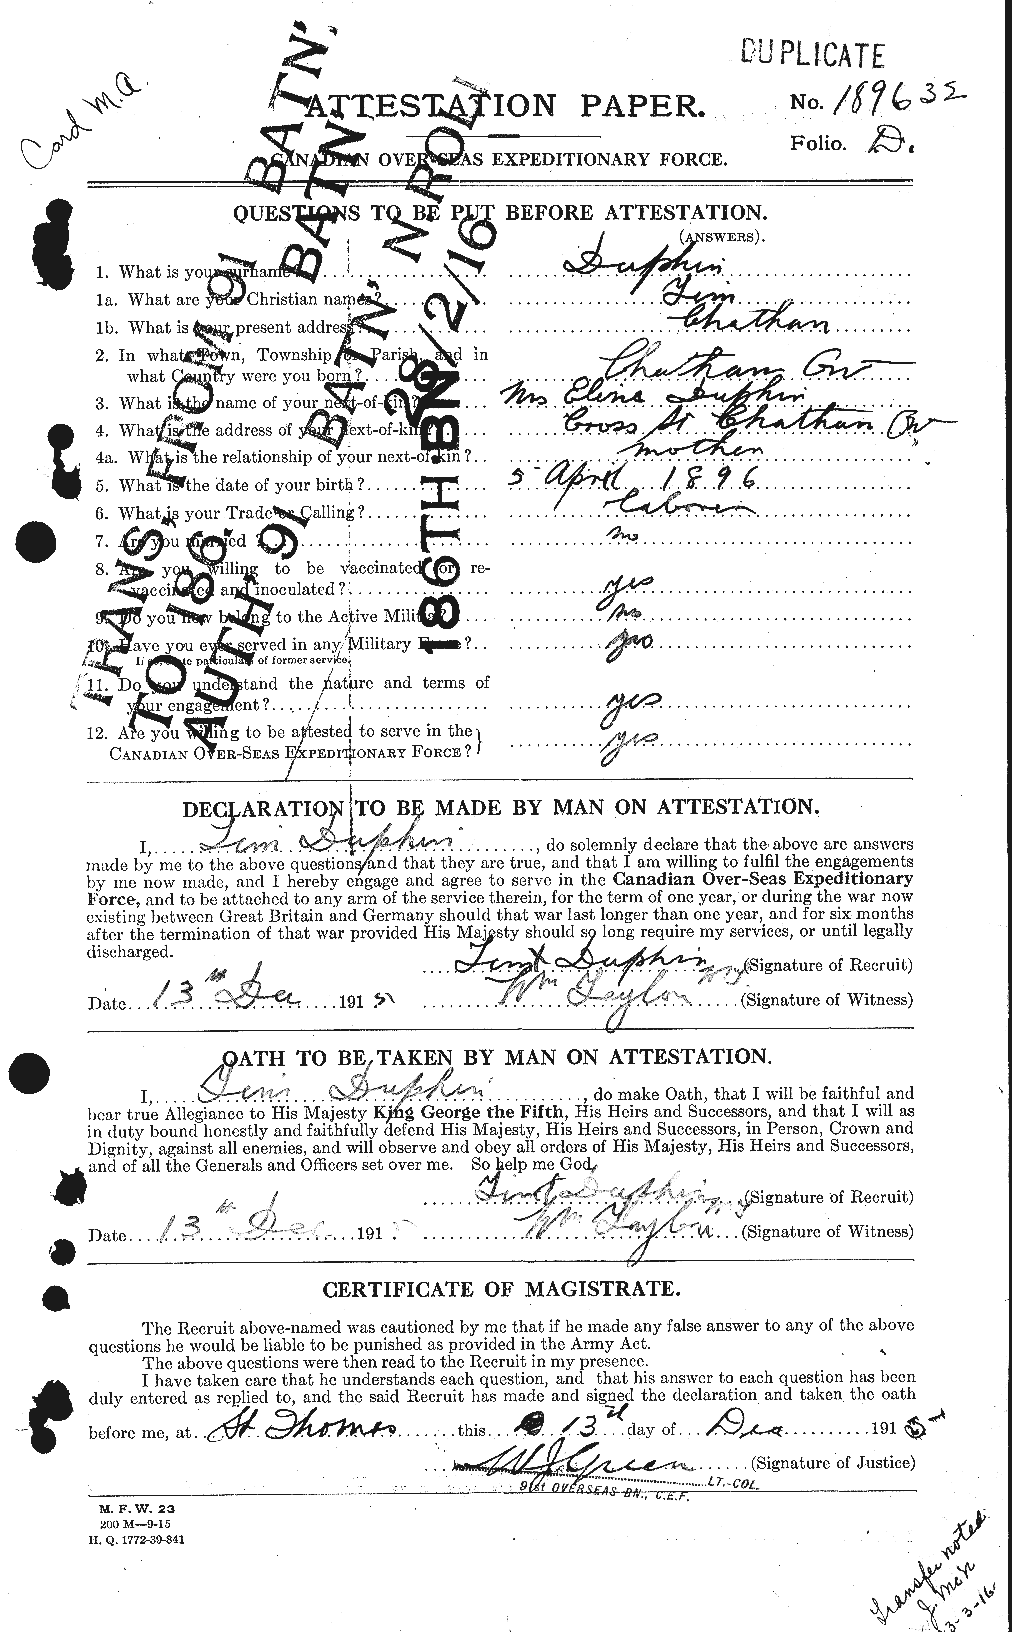 DUPLICATE
Card M.A.
ATTESTATION PAPER.
No. 189632
Folio. D.
CANADIAN OVER-SEAS EXPEDITIONARY FORCE.
TRANS. FROM 91 BATN.
TO 186. BATN.
AUTH, 91 BATN' N ROLL
28/2/16
186TH BN
QUESTIONS TO BE PUT BEFORE ATTESTATION.
(ANSWERS).
1. What is your surname? Duphin
1a. What are your Christian names? Tim
1b. What is your present address? Chathan
2. In what Town, Township or Parish, and in
what Country were you born? Chatham Ont
3. What is the name of your next-of-kin? Mrs Duphin
4. What is the address of your next-of-kin? Cross St Chathan Ont
4a. What is the relationship of your next-of-kin? mother
5. What is the date of your birth? 5 April 1896
6. What is your Trade or Calling? Laborer
7. Are you married no
8. Are you willing to be vaccinated or re-
vaccinated and inoculated? yes
9. Do you now belong to the Active Militia? no
10. Have you ever served in any Military Force? no
If so, state particulars of former service.
11. Do you understand the nature and terms of
your engagement? yes
12. Are you willing to be attested to serve in the
CANADIAN OVER-SEAS EXPEDITIONARY FORCE? yes
DECLARATION TO BE MADE BY MAN ON ATTESTATION.
I, Tim Duphin, do solemnly declare that the above are answers
made by me to the above questions and that they are true, and that I am willing to fulfil the engagements
by me now made, and I hereby engage and agree to serve in the Canadian Over-Seas Expeditionary
Force, and to be attached to any arm of the service therein, for the term of one year, or during the war now
existing between Great Britain and Germany should that war last longer than one year, and for six months
after the termination of that war provided His Majesty should so long require my services, or until legally
discharged.
Tim x Duphin (Signature of Recruit)
Date 13th Dec 1915 Wm Taylor (Signature of Witness)
OATH TO BE TAKEN BY MAN ON ATTESTATION.
I, Tim Duphin, do make Oath, that I will be faithful and
bear true Allegiance to His Majesty King George the Fifth, His Heirs and Successors, and that I will as
in duty bound honestly and faithfully defend His Majesty, His Heirs and Successors, in Person, Crown and
Dignity, against all enemies, and will observe and obey all orders of His Majesty, His Heirs and Successors,
and of all the Generals and Officers set over me. So help me God.
Tim x Duphin (Signature of Recruit)
Date 13th Dec 191 Wm Taylor (Signature of Witness)
CERTIFICATE OF MAGISTRATE.
The Recruit above-named was cautioned by me that if he made any false answer to any of the above
questions he would be liable to be punished as provided in the Army Act.
The above questions were then read to the Recruit in my presence.
I have taken care that he understands each question, and that his answer to each question has been
duly entered as replied to, and the said Recruit has made and signed the declaration and taken the oath
before me, at St Thomas this 13th day of Dec 1915
W J Green (Signature of Justice)
LT.-COL.
91st OVERSEAS BN., C.E.F.
M. F. W. 23
200 M—9-15
H. Q. 1772-39-841
Transfer noted
J. McN
3-3-16